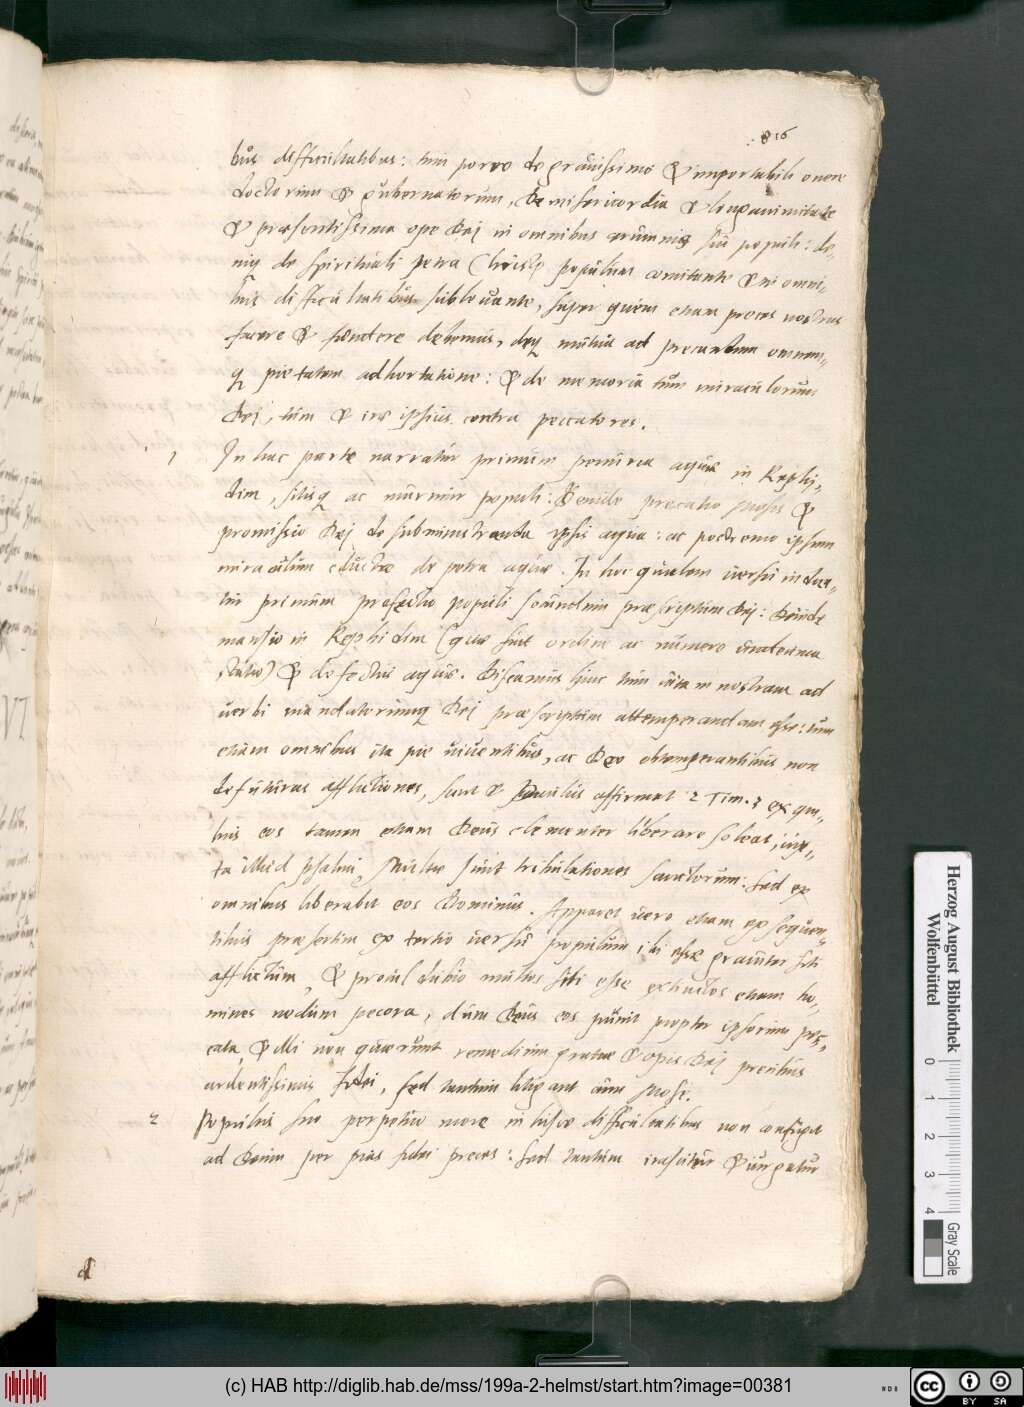 816
bus difficultatibus: tum porro de gravissimo & importabili onere
doctorum & gubernatorum, De misericordia & longanimitate
& praesentissima ope Dei in omnibus aerumnis sui populi: de-
niq de spirituali petra Christo populum comitante & in omni-
bus difficultatibus sublevante, super quem etiam preces nostras
facere & fundere debemus, deq mutua ad precandum omnem-
q pietatem adhortatione: & de memoria tum miraculorum
Dei, tum & irae ipsius contra peccatores.
1 In hac parte narratur primum penuria aquae in Rephi-
dim, sitisq ac murmur populi: Deinde precatio Mosis &
promissio Dei de subministranda ipsis aqua: ac postremo ipsum
miraculum eductae de petra aquae. In hoc autem versu indica-
tur primum profectio populi secundum praescriptum Dei: Deinde
mansio in Rephidim (quae fuit ordine ac numero undecima
statio) & defectus aquae. Discamus hinc tum vitam nostram ad
verbi mandatorumq Dei praescriptum attemperandam esse: tum
etiam omnibus ita pie viventibus, ac Deo obtemperantibus non
defuturas afflictiones, sicut & Paulus affirmat 2 Tim. 3 ex qui-
bus eos tamen etiam Deus clementer liberare soleat, iux-
ta illud psalmi, Multae sunt tribulationes iustorum: sed ex
omnibus liberabit eos Dominus. Apparet vero etiam ex sequen-
tibus praesertim ex tertio versu populum ibi esse graviter siti
afflictum, & procul dubio multos siti esse extinctos etiam ho-
mines nedum pecora, dum Deus eos punit propter ipsorum pec-
cata, & illi non quaerunt remedium gratiae & opis Dei precibus
ardentissimis fidei, sed tantum litigant cum Mose.
2 Populus suo perpetuo more in hisce difficultatibus non confugit
ad Deum per pias fidei preces: sed tantum irascitur & iurgatur
Herzog August Bibliothek
Wolfenbüttel
0 1 2 3 4
Gray Scale
(c) HAB http://diglib.hab.de/mss/199a-2-helmst/start.htm?image=00381
cc BY SA